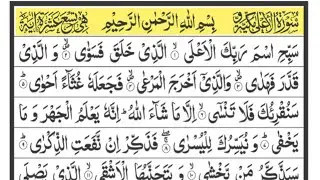 سُوْرَةُ الْاَعْلٰى مَكِّيَّةٌ وَّ بِسْمِ اللّٰهِ الرَّحْمٰنِ الرَّحِيْمِ هِىَ تِسْعَ عَشَرَةَ اٰيَةً
سَبِّحِ اسْمَ رَبِّكَ الْاَعْلَى ۙ‏﴿۱﴾ الَّذِىْ خَلَقَ فَسَوّٰى ۙ‏﴿۲﴾ وَ الَّذِىْ
قَدَّرَ فَهَدٰى ۙ‏﴿۳﴾ وَالَّذِىْۤ اَخْرَجَ الْمَرْعٰى ۙ‏﴿۴﴾ فَجَعَلَهٗ غُثَآءً اَحْوٰى ؕ‏﴿۵﴾
سَنُقْرِئُكَ فَلَا تَنْسٰٓى ۙ‏﴿۶﴾ اِلَّا مَا شَآءَ اللّٰهُ ؕ اِنَّهٗ يَعْلَمُ الْجَهْرَ وَ مَا
يَخْفٰى ؕ‏﴿۷﴾ وَ نُيَسِّرُكَ لِلْيُسْرٰى ۚ‏﴿۸﴾ فَذَكِّرْ اِنْ نَّفَعَتِ الذِّكْرٰى ؕ‏﴿۹﴾
سَيَذَّكَّرُ مَنْ يَّخْشٰى ۙ‏﴿۱۰﴾ وَ يَتَجَنَّبُهَا الْاَشْقَى ۙ‏﴿۱۱﴾ الَّذِىْ يَصْلَى